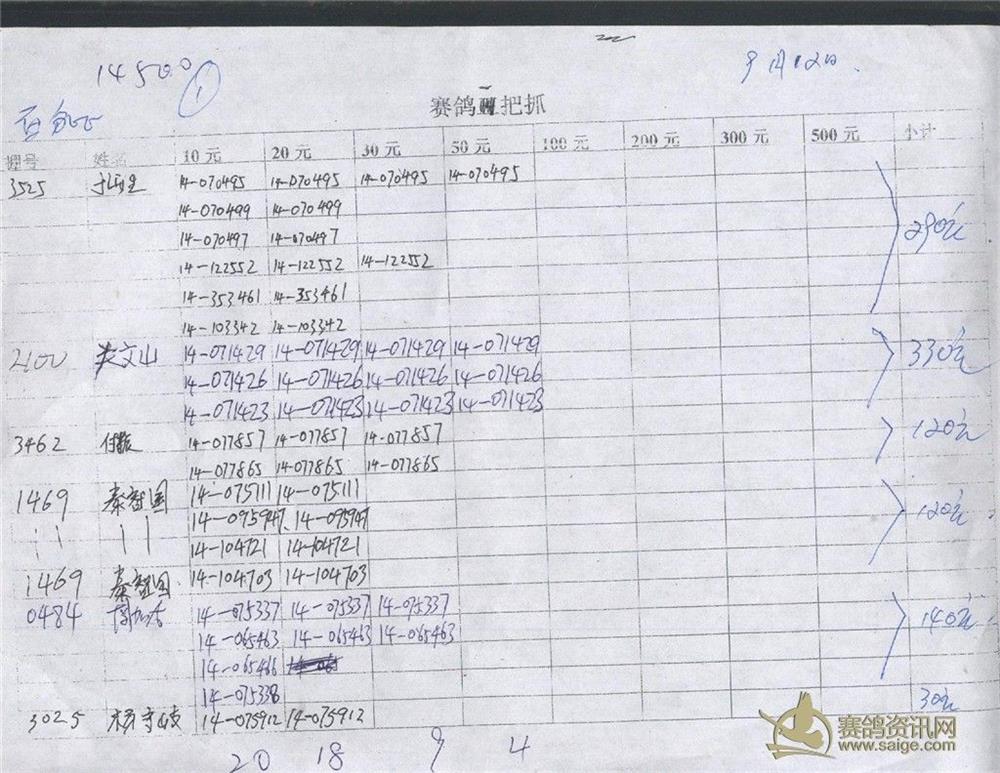 14500 ① 9月12日.
赛鸽 把抓
棚号 姓名 10 元 20 元 30 元 50 元 100 元 200 元 300 元 500 元 小计
3525 14-070495 14-070495 14-070495 14-070495
14-070499 14-070499
14-070497 14-070497 290元
14-122552 14-122552 14-122552
14-353461 14-353461
14-103342 14-103342
2100 文山 14-071429 14-071429 14-071429 14-071429 330元
14-071426 14-071426 14-071426 14-071426
14-071423 14-071423 14-071423 14-071423
3462 14-077857 14-077857 14-077857 120元
14-077865 14-077865 14-077865
1469 秦智国 14-075111 14-075111
14-095947 14-095947 120元
14-104721 14-104721
1469 秦智国 14-104703 14-104703
0484 14-075337 14-075337 14-075337 140元
14-065463 14-065463 14-065463
14-065466
14-075338 30元
3025 14-075912 14-075912
20 18 9 4
赛鸽资讯网
www.saige.com